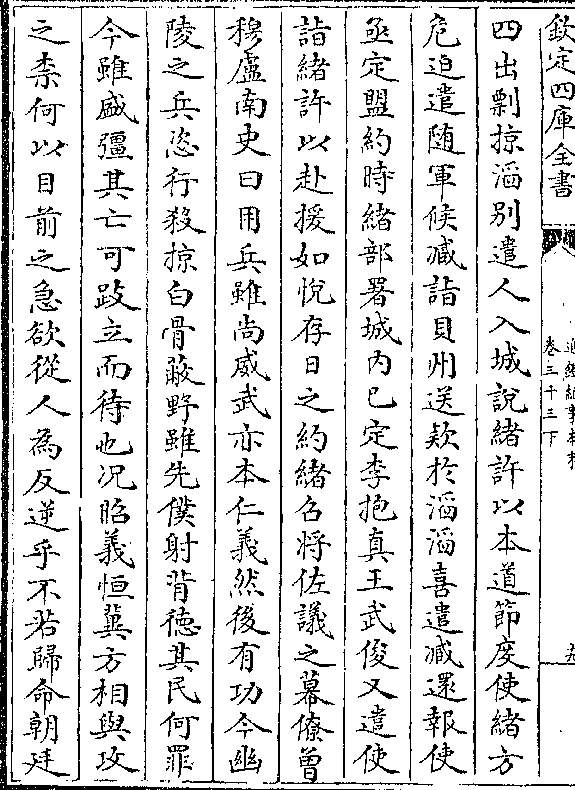 欽定四庫全書
通鑑紀事本末
卷三十三下
四出剽掠滔别遣人入城説緒許以本道節度使緒方
危迫遣随軍候臧詣貝州送欵於滔滔喜遣臧還報使
亟定盟約時緒部署城内已定李抱真王武俊又遣使
詣緒許以赴援如悦存日之約緒召将佐議之幕僚曽
穆盧南史曰用兵雖尚威武亦本仁義然後有功今幽
陵之兵恣行殺掠白骨蔽野雖先僕射背徳其民何罪
今雖盛彊其亡可跂立而待也况昭義恒冀方相與攻
之柰何以目前之急欲從人為反逆乎不若歸命朝廷